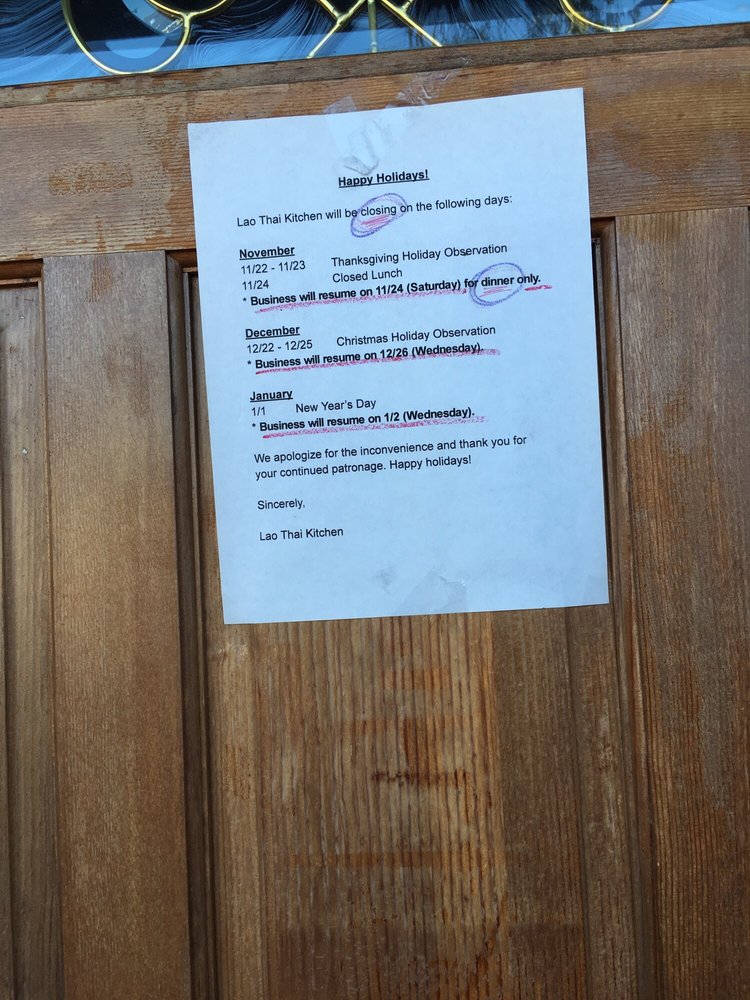 Happy Holidays!
Lao Thai Kitchen will be closing on the following days:
November
11/22 - 11/23 Thanksgiving Holiday Observation
11/24 Closed Lunch
* Business will resume on 11/24 (Saturday) for dinner only.
December
12/22 - 12/25 Christmas Holiday Observation
* Business will resume on 12/26 (Wednesday).
January
1/1 New Year's Day
* Business will resume on 1/2 (Wednesday).
We apologize for the inconvenience and thank you for
your continued patronage. Happy holidays!
Sincerely,
Lao Thai Kitchen